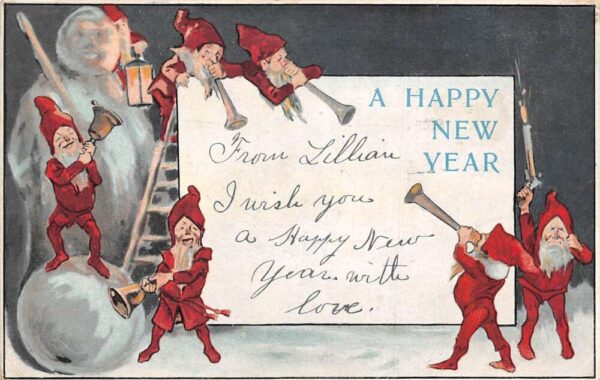 A HAPPY
NEW
YEAR
From Lillian
I wish you
a Happy New
Year with
love.